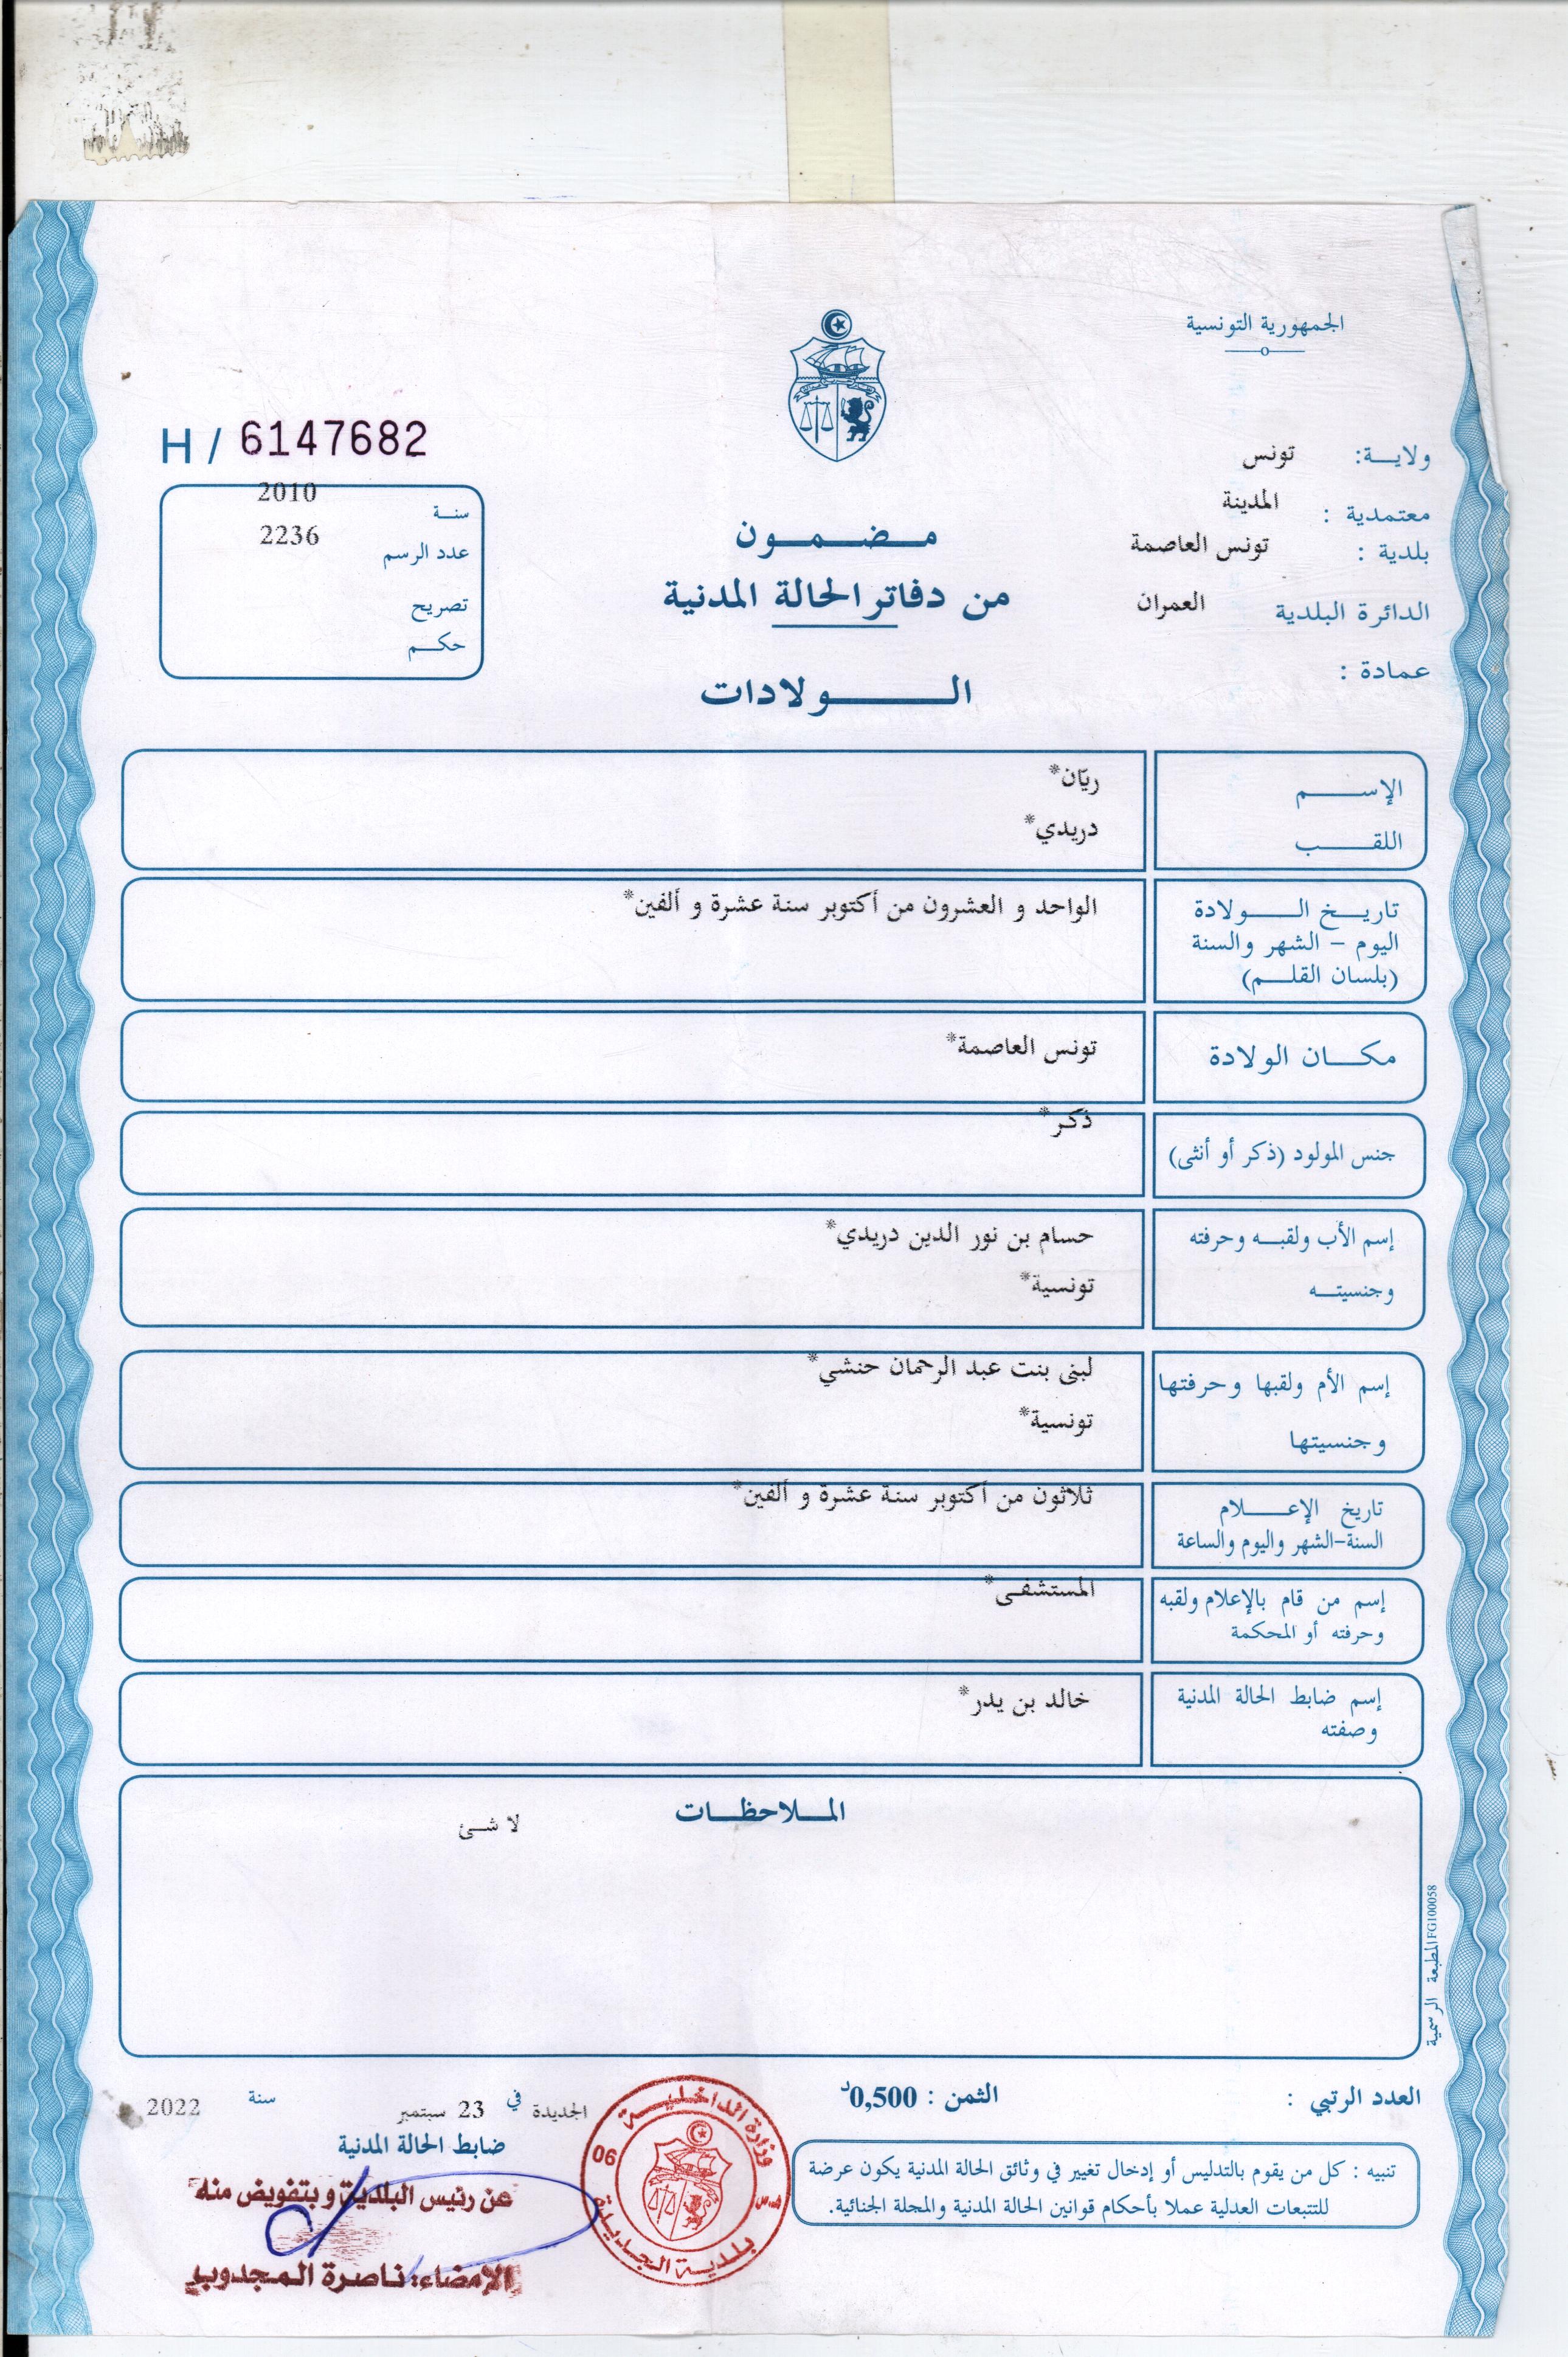 الجمهورية التونسية
H / 6147682
ولايـــة: تونس
معتمدية : المدينة
بلدية : تونس العاصمة
الدائرة البلدية العمران
عمادة :
سنـة 2010
عدد الرسم 2236
تصريح
حكـم
مـضـمـون
من دفاتر الحالة المدنية
الـــولادات
الإســـم ريّان*
اللقـــب دريدي*
تاريــخ الـــولادة الواحد و العشرون من أكتوبر سنة عشرة و ألفين*
اليوم – الشهر والسنة
(بلسان القلـــم)
مكـــان الولادة تونس العاصمة*
جنس المولود (ذكر أو أنثى) ذكر*
إسم الأب ولقبــه وحرفته حسام بن نور الدين دريدي*
وجنسيتــه تونسية*
إسم الأم ولقبها وحرفتها لبنى بنت عبد الرحمان حنشي*
وجنسيتها تونسية*
تاريخ الإعـــلام ثلاثون من أكتوبر سنة عشرة و ألفين*
السنة-الشهر واليوم والساعة
إسم من قام بالإعلام ولقبه المستشفى*
وحرفته أو المحكمة
إسم ضابط الحالة المدنية خالد بن يدر*
وصفته
المـلاحظـات
لا شئ
المطبعة الرسمية FG100058
العدد الرتبي :
الثمن : 0,500د
الجديدة في 23 سبتمبر سنة 2022
ضابط الحالة المدنية
عن رئيس البلدية و بتفويض منه
الإمضاء: ناصرة المجدوب
وزارة الداخلية
06
بلدية الجديدة
تنبيه : كل من يقوم بالتدليس أو إدخال تغيير في وثائق الحالة المدنية يكون عرضة
للتتبعات العدلية عملا بأحكام قوانين الحالة المدنية والمجلة الجنائية.